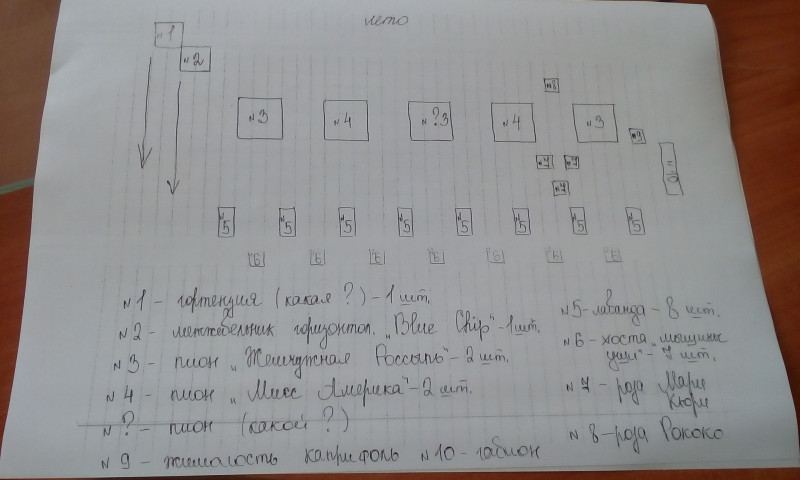 лето
№1
№2
№8
№3 №4 №?3 №4 №3
№9
№7 №7
№10
№7
№5 №5 №5 №5 №5 №5 №5 №5
№6 №6 №6 №6 №6 №6 №6
№1 - гортензия (какая?) - 1 шт.
№2 - можжевельник горизонтал. „Blue Chip" - 1 шт.
№3 - пион „Жемчужная Россыпь" - 2 шт.
№4 - пион „Мисс Америка" - 2 шт.
№? - пион (какой?)
№9 - жимолость каприфоль №10 - габион
№5 - лаванда - 8 шт.
№6 - хоста „мышиные
уши" - 7 шт.
№7 - роза Мари
Кюри
№8 - роза Рококо